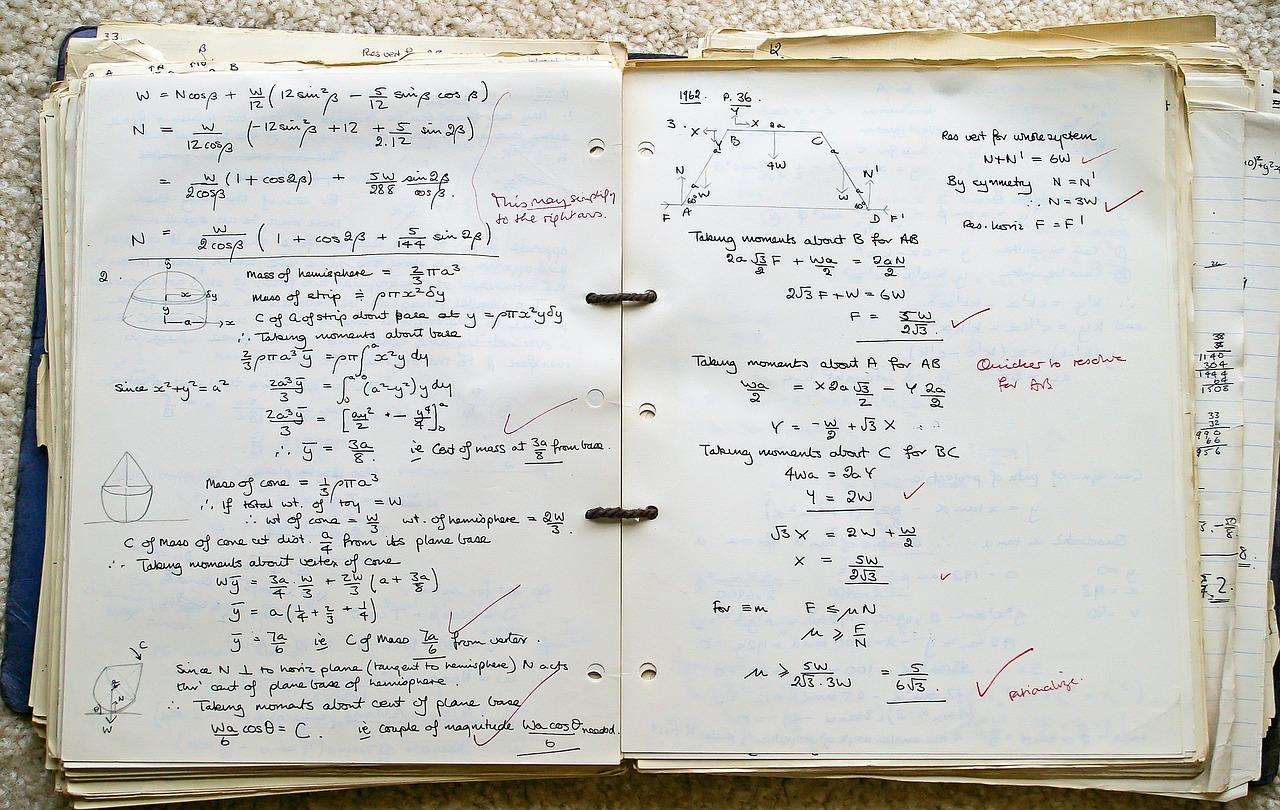 33.
β
Res vert
B
W = Ncosβ + W/12 (12sin²β − 5/12 sinβ cosβ)
N = W/12cosβ (−12sin²β + 12 + 5/2.12 sin2β)
= W/2cosβ (1 + cos2β) + 5W/288 sin2β/cosβ.
This may simplify
to the right ans.
N = W/2cosβ (1 + cos2β + 5/144 sin2β)
2.
y
x δy
y
a x
Mass of hemisphere = 2/3 πa³
Mass of strip ≑ ρπx²δy
C of G of strip about base at y = ρπx²yδy
∴ Taking moments about base
2/3 ρπa³ȳ = ρπ∫₀ᵃ x²y dy
Since x²+y²=a² 2a³ȳ/3 = ∫₀ᵃ (a²−y²)y dy
2a³ȳ/3 = [ay²/2 − y⁴/4]₀ᵃ
∴ ȳ = 3a/8 ie Cent of mass at 3a/8 from base.
Mass of cone = 1/3 ρπa³
∴ If total wt. of toy = W
∴ wt of cone = W/3 wt. of hemisphere = 2W/3.
C of Mass of cone at dist. a/4 from its plane base
∴ Taking moments about vertex of cone
Wȳ = 3a/4 . W/3 + 2W/3 (a + 3a/8)
ȳ = a(1/4 + 2/3 + 1/4)
ȳ = 7a/6 ie C of Mass 7a/6 from vertex.
C
N
θ
W
Since N ⊥ to horiz plane (tangent to hemisphere) N acts
thro' cent of plane base of hemisphere.
∴ Taking moments about cent of plane base
Wa/6 cosθ = C. ie couple of magnitude Wa cosθ/6 needed.
62.
1962. P. 36.
3.
Y
X X 2a
Y B C
a a
4W
N N'
a W W a
60° 60°
F A D F'
Res vert for whole system
N+N' = 6W
By symmetry N = N'
∴ N = 3W
Res. horiz F = F'
Taking moments about B for AB
2a √3/2 F + Wa/2 = 2aN/2
2√3 F + W = 6W
F = 5W/2√3.
Taking moments about A for AB
Quicker to resolve
for AB
Wa/2 = X 2a √3/2 − Y 2a/2
Y = −W/2 + √3 X
Taking moments about C for BC
4Wa = 2aY
Y = 2W
√3 X = 2W + W/2
X = 5W/2√3
For ≡m F ≤ μN
μ ≥ F/N
μ ≥ 5W/2√3.3W = 5/6√3.
rationalize.
38
38
1140
304
1444
64
1508
33
32
990
66
956